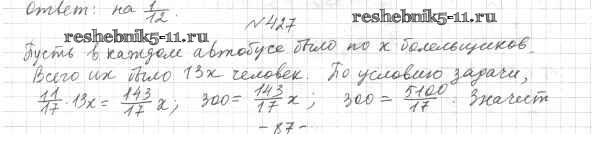 ответ: на 1/12.
reshebnik5-11.ru
№427
reshebnik5-11.ru
Пусть в каждом автобусе было по x болельщиков.
Всего их было 13x человек. По условию задачи,
11/17 · 13x = 143/17 x; 300 = 143/17 x; 300 = 5100/17. Значит
- 87 -